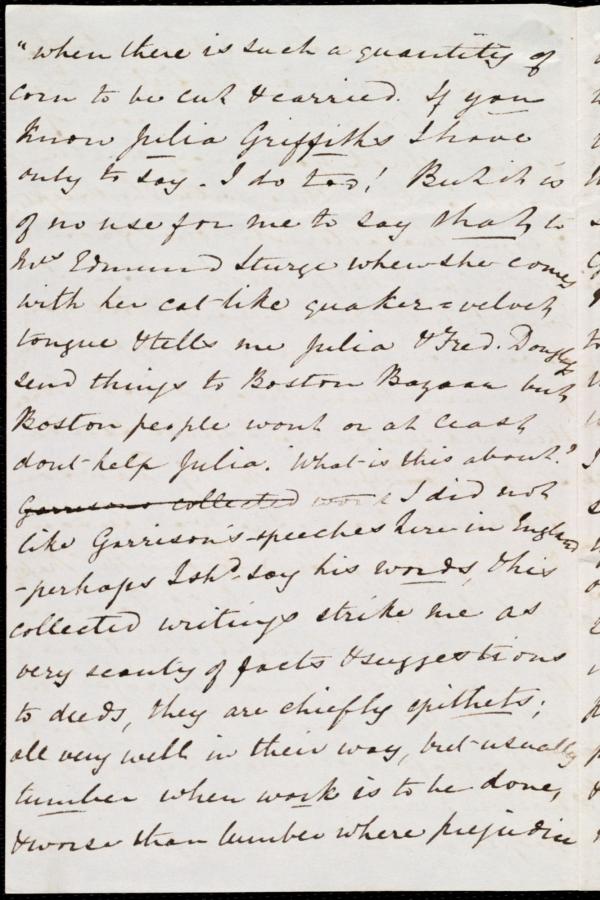 "when there is such a quantity of
corn to be cut & carried. If you
know Julia Griffiths I have
only to say - I do too! But it is
of no use for me to say that, to
Mrs Edmund Sturge when she comes
with her cat-like quaker=velvet
tongue & tells me Julia & Fred. Douglass
send things to Boston Bazaar but
Boston people wont or at least
dont help Julia. "What is this about?"
Garrisons collected I did not
like Garrison's speeches here in England
-perhaps I shd say his words, this
collected writings strike me as
very scanty of facts & suggestions
to deeds, they are chiefly epithets;
all very well in their way, but usually
lumber when work is to be done,
& worse than lumber where prejudice